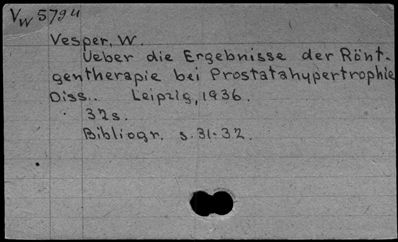 Vw 579u
Vesper, W.
Ueber die Ergebnisse der Rönt-
gentherapie bei Prostatahypertrophie
Diss.. Leipzig, 1936.
32s.
Bibliogr. s. 31-32.